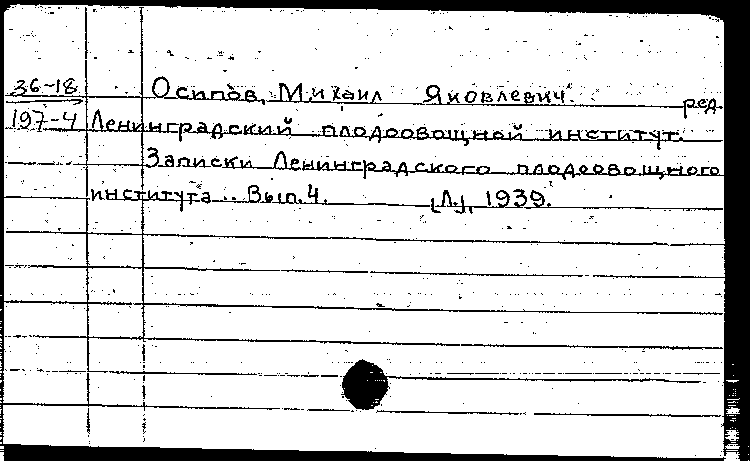 36-18 Осипов, Михаил Яковлевич. ред.
197-4 Ленинградский плодоовощной институт.
Записки Ленинградского плодоовощного
института.. Вып. 4. [Л.], 1939.